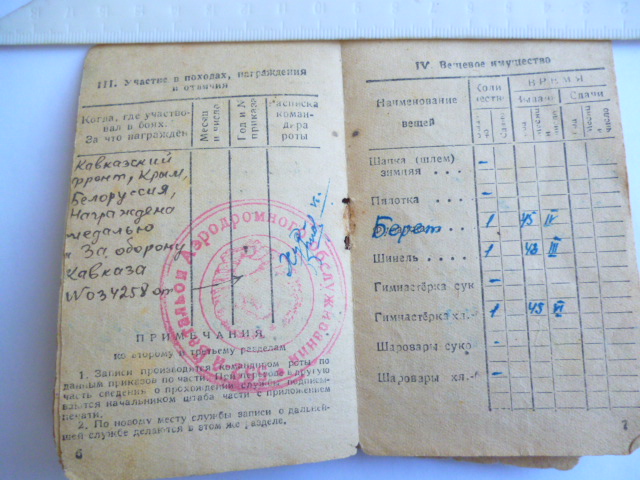 III. Участие в походах, награждения
и отличия
Когда, где участво-
вал в боях.
За что награждён
Месяц
и число
Год и №
приказа
Расписка
коман-
дира
роты
Кавказский
фронт, Крым,
Белоруссия,
Награждена
медалью
"За оборону
Кавказа
№034258 от
Батальон Аэродромного Обслуживания
ПРИМЕЧАНИЯ
ко второму и третьему разделам
1. Записи производятся командиром роты по
данным приказов по части. При переводе в другую
часть сведения о прохождении службы подписы-
ваются начальником штаба части с приложением
печати.
2. По новому месту службы записи о дальней-
шей службе делаются в этом же разделе.
6
IV Вещевое имущество
Наименование
вещей
Коли
чество
ВРЕМЯ
Выдачи
Сдачи
Шапка (шлем)
зимняя . . . . -
Пилотка . . . . -
Берет 1 45 IV
Шинель . . . . 1 43 III
Гимнастёрка сук -
Гимнастёрка хл.- 1 45 VI
Шаровары суко -
Шаровары хл.- -
7